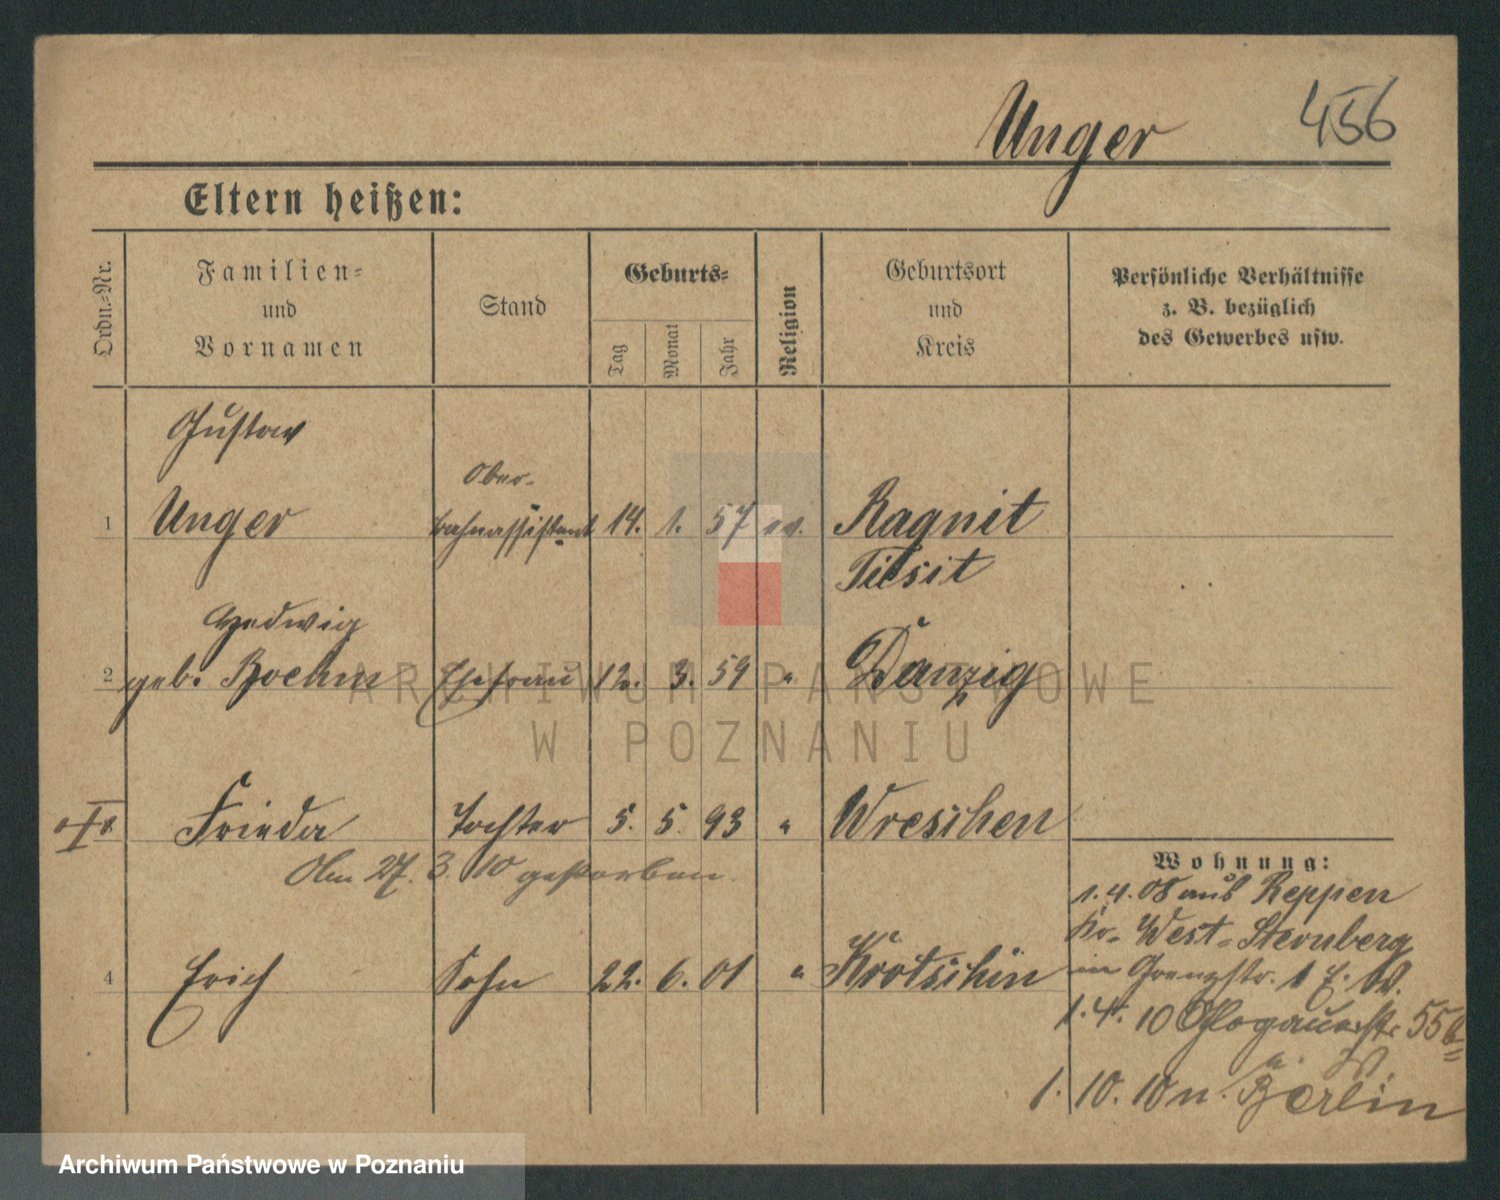 Unger 456
Eltern heißen:
Ordn.-Nr.
Familien-
und
Vornamen
Stand
Geburts-
Tag
Monat
Jahr
Religion
Geburtsort
und
Kreis
Persönliche Verhältnisse
z. B. bezüglich
des Gewerbes usw.
Gustav
Ober-
1 Unger bahnassistent 14. 1. 57 ev. Ragnit
Tilsit
Hedwig
2 geb. Boehm Ehefrau 12. 3. 59 " Danzig
Frieda Tochter 5. 5. 93 " Wreschen
Am 27. 3. 10 gestorben.
4 Erich Sohn 22. 6. 01 " Krotschin
Wohnung:
1. 4. 08 aus Reppen
Kr. West-Sternberg
in Grenzstr. 1 E. W.
1. 4. 10 Glogauerstr. 55b
a. W.
1. 10. 10 n. Berlin
ARCHIWUM PAŃSTWOWE
W POZNANIU
Archiwum Państwowe w Poznaniu